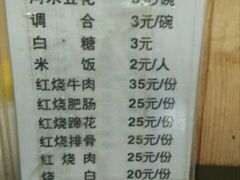 调合 3元/碗
白糖 3元
米饭 2元/人
红烧牛肉 35元/份
红烧肥肠 25元/份
红烧蹄花 25元/份
红烧排骨 25元/份
红烧肉 25元/份
烧白 20元/份